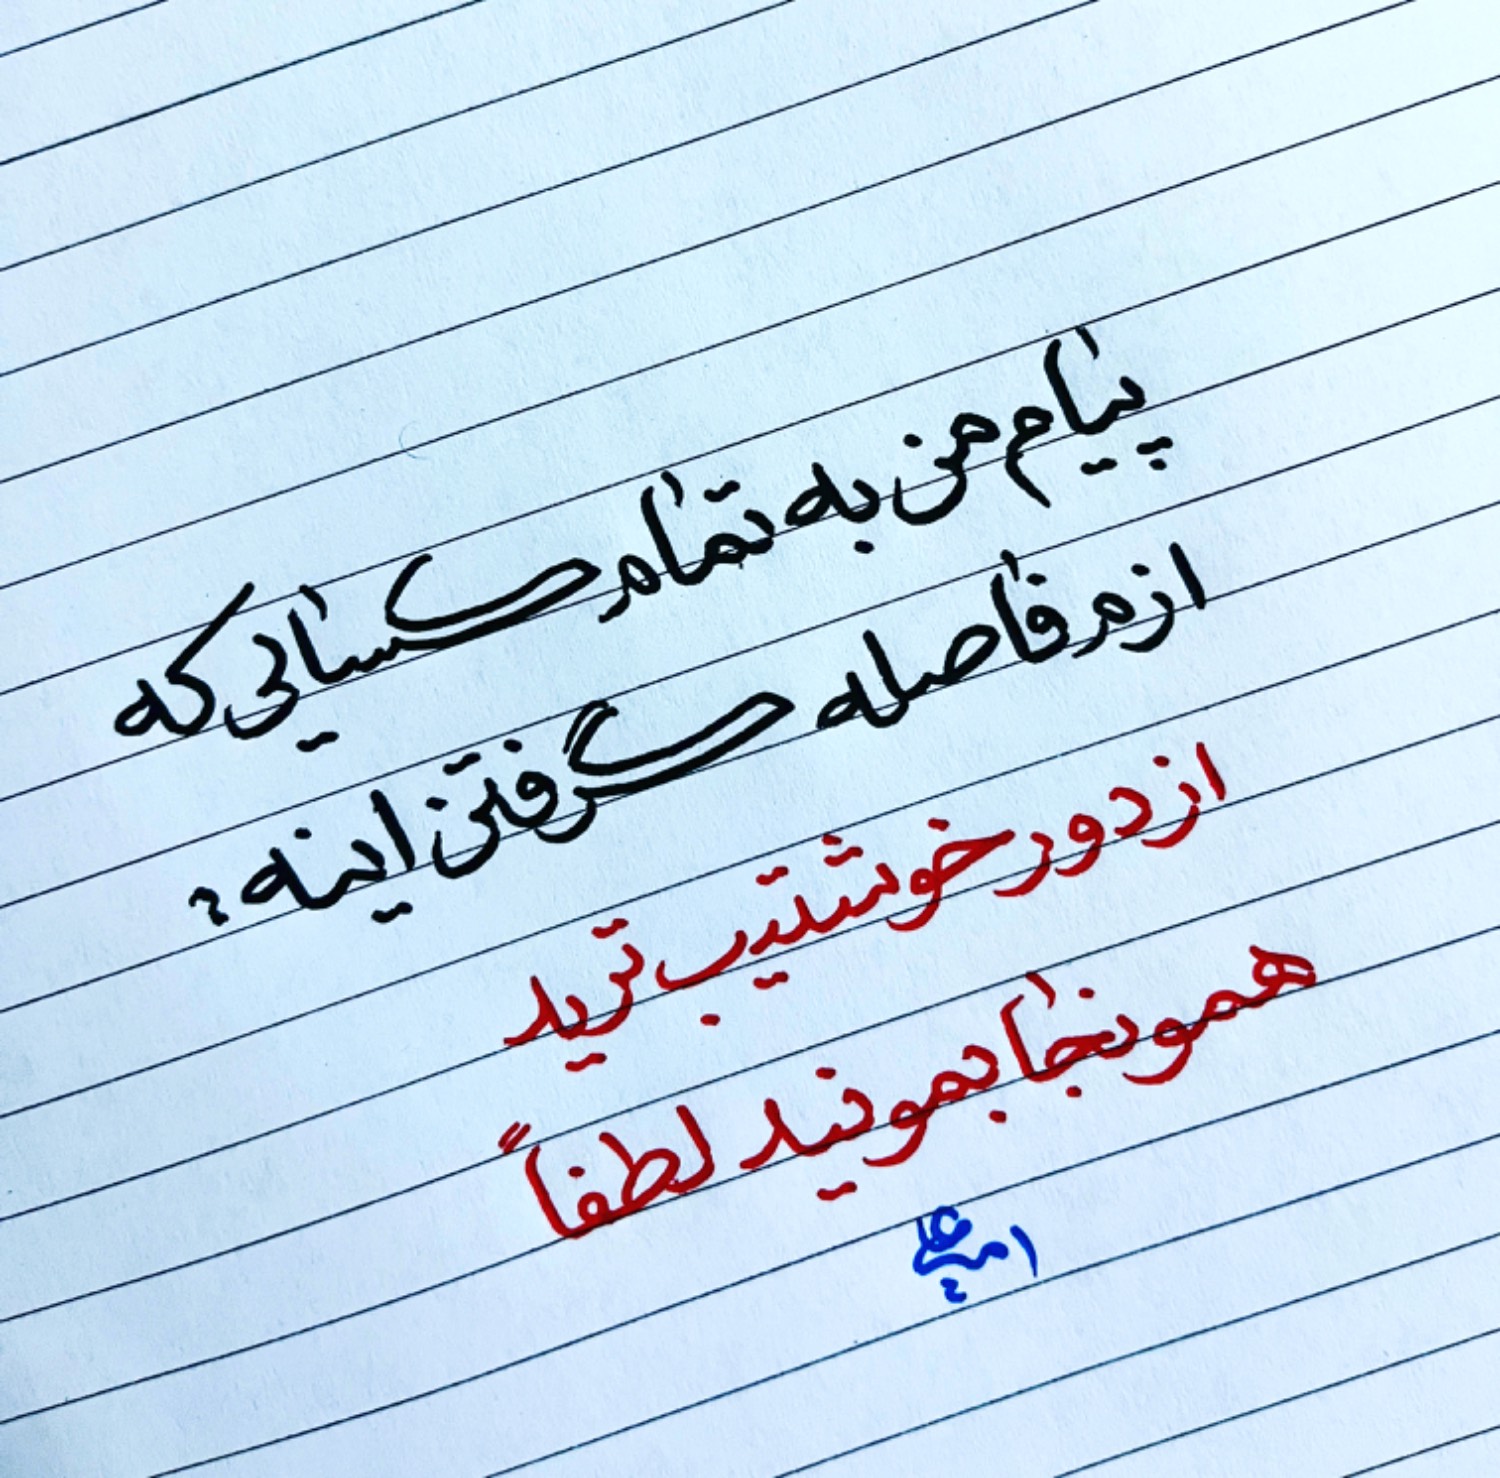 پیام من به تمام کسایی که
ازم فاصله گرفتن اینه :
از دور خوشتیب ترید
همونجا بمونید لطفاً